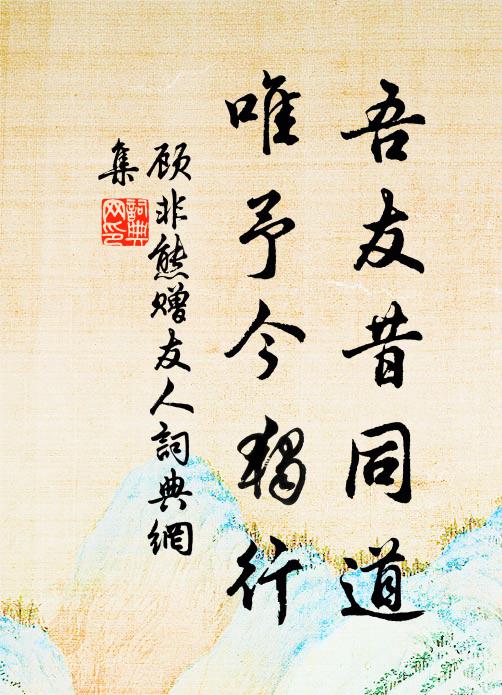 吾友昔同道
唯予今獨行
顾非熊赠友人詞典網
集
詞典
网印